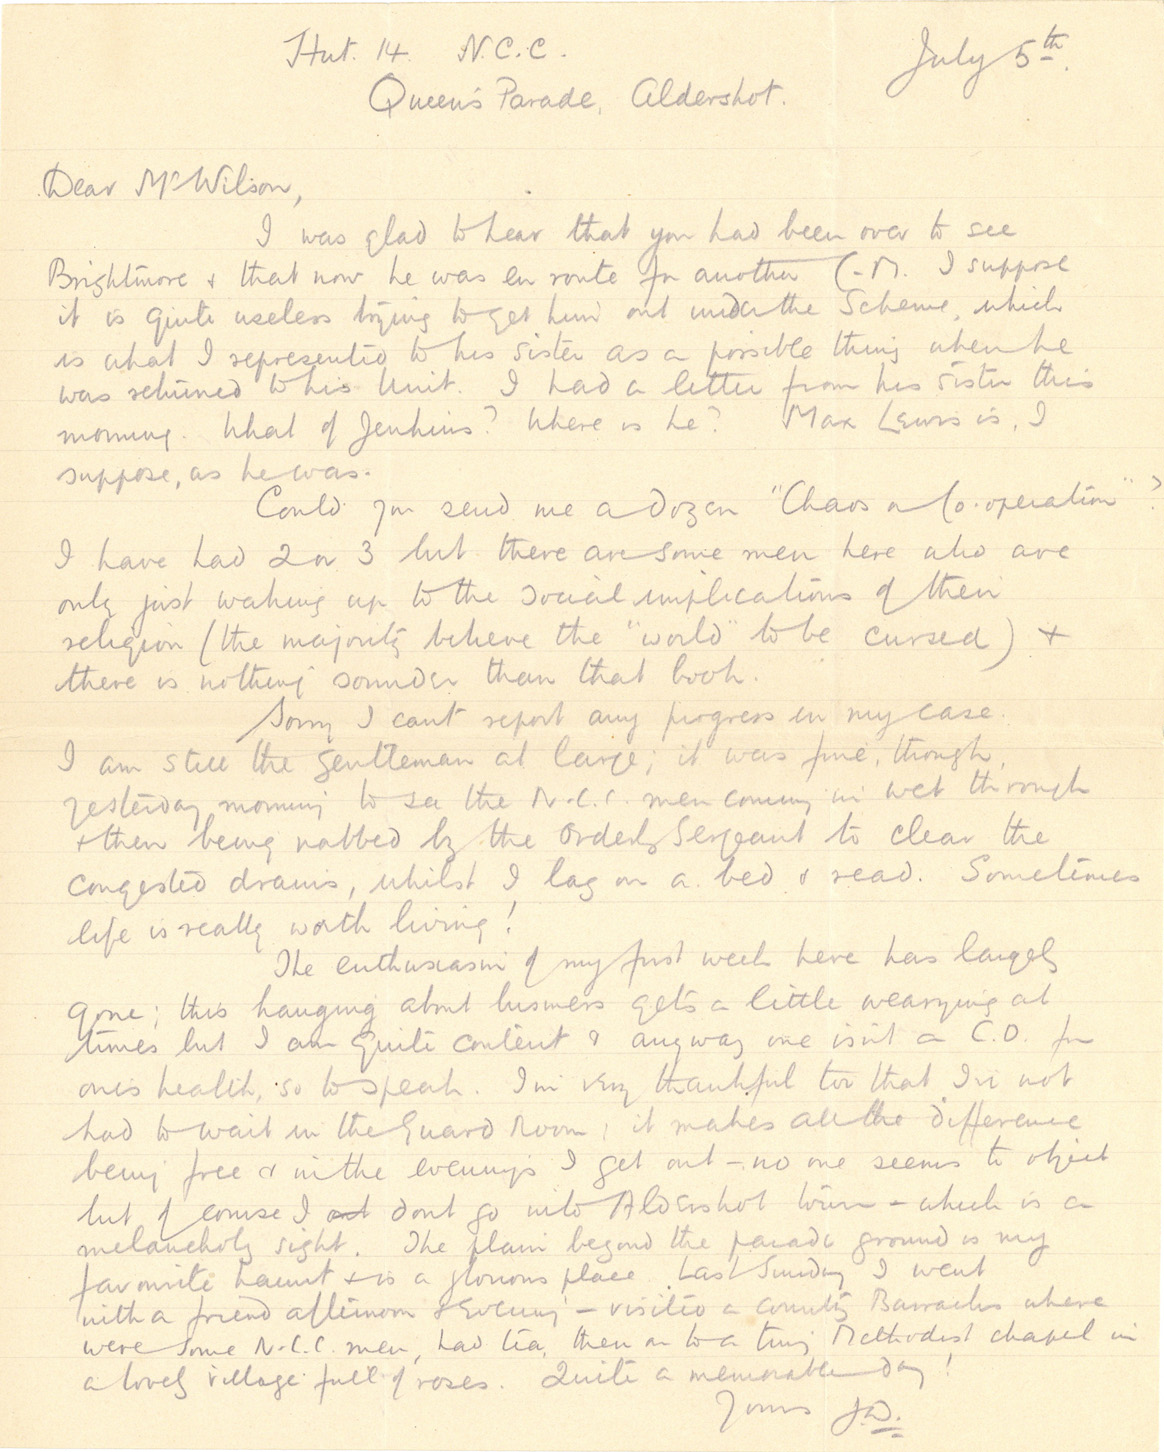 Hut. 14. N.C.C.
July 5th.
Queen's Parade, Aldershot.
Dear Mr Wilson,
I was glad to hear that you had been over to see
Brightmore & that now he was en route for another C-M. I suppose
it is quite useless trying to get him out under the Scheme, which
is what I represented to his sister as a possible thing when he
was returned to his Unit. I had a letter from his sister this
morning. What of Jenkins? Where is he? Max Lewis is, I
suppose, as he was.
Could you send me a dozen "Chaos or Co-operation"?
I have had 2 or 3 but there are some men here who are
only just waking up to the social implications of their
religion (the majority believe the "world" to be cursed) &
there is nothing sounder than that book.
Sorry I can't report any progress in my case.
I am still the gentleman at large; it was fine, though,
yesterday morning to see the N.C.C. men coming in wet through
& then being nabbed by the Orderly Sergeant to clear the
congested drains, whilst I lay on a bed & read. Sometimes
life is really worth living!
The enthusiasm of my first week here has largely
gone; this hanging about business gets a little wearying at
times but I am quite content & anyway one isn't a C.O. for
one's health, so to speak. I'm very thankful too that I've not
had to wait in the Guard Room; it makes all the difference
being free & in the evenings I get out - no one seems to object
but of course I don't go into Aldershot town - which is a
melancholy sight. The plain beyond the parade ground is my
favourite haunt & is a glorious place. Last Sunday I went
with a friend afternoon & evening - visited a county Barracks where
were some N.C.C. men, had tea, then on to a tiny Methodist chapel in
a lovely village full of roses. Quite a memorable day!
Yours J.D.